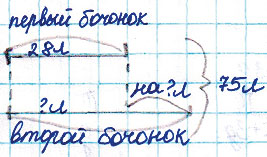 первый бочонок
28л
на?л
75л
?л
второй бочонок